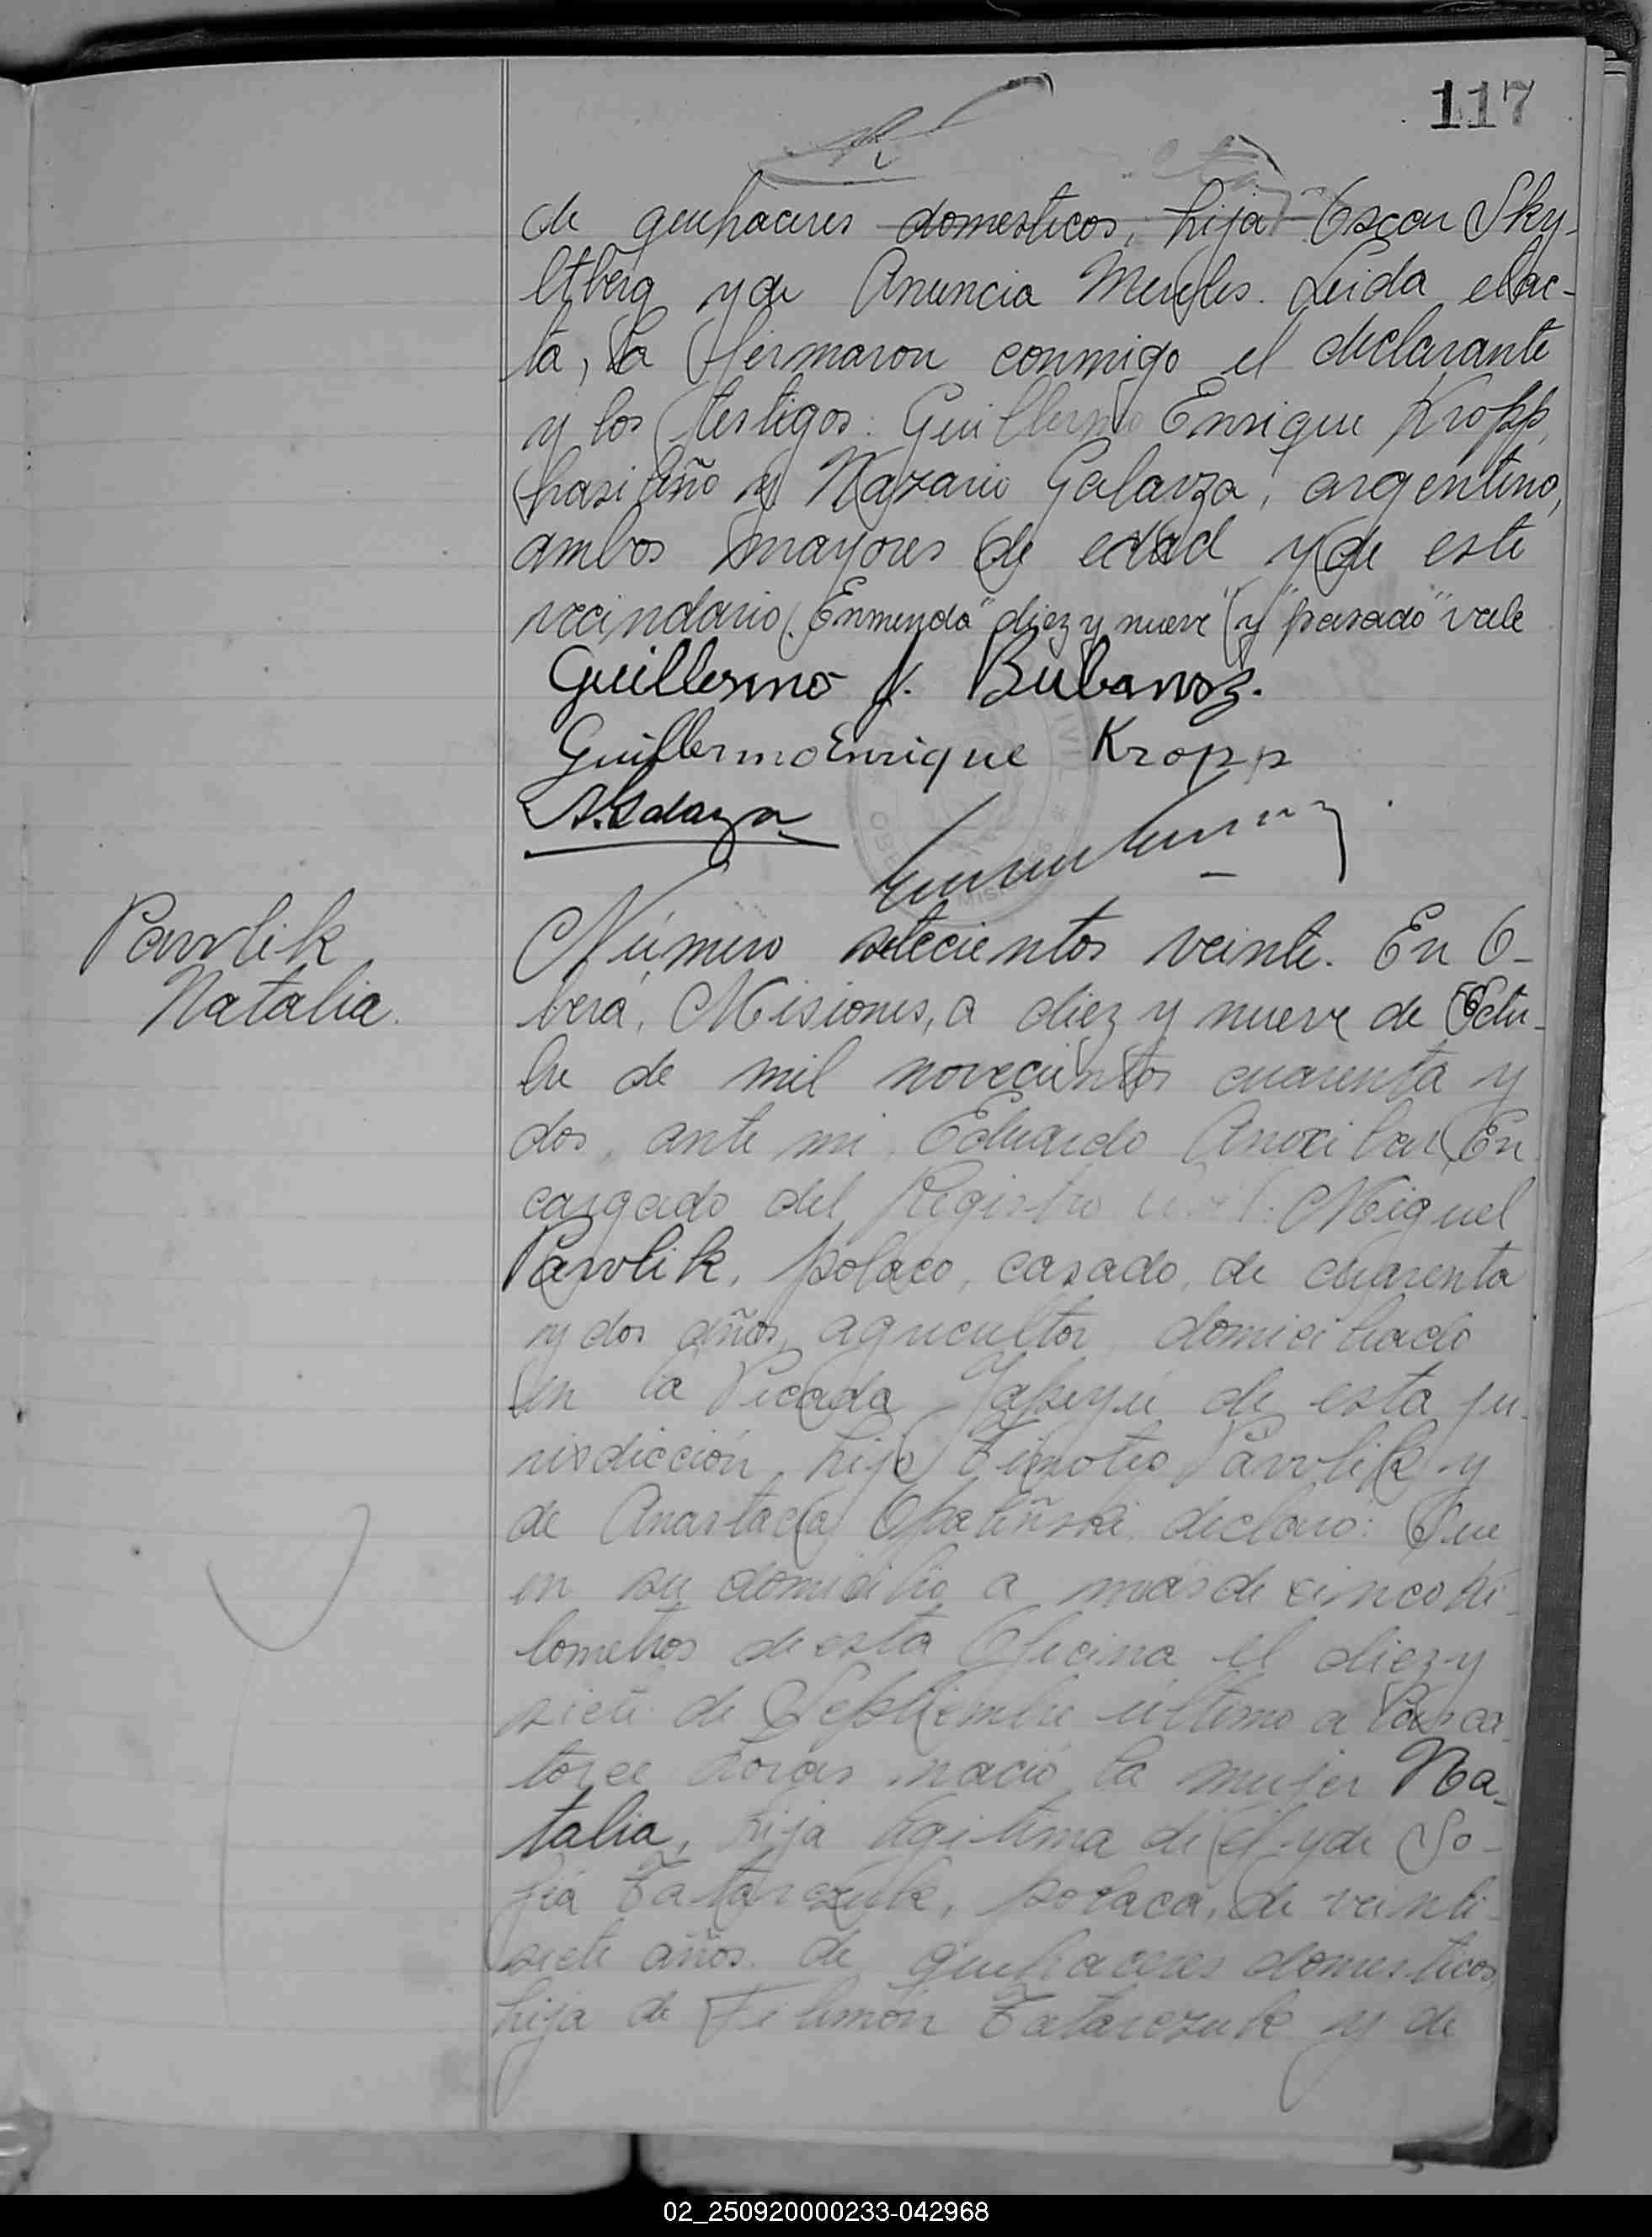 117
de quehaceres domesticos, hija Oscar Sky-
ltberg y de Anuncia Mereles. Leida el ac-
ta, la firmaron conmigo el declarante
y los testigos: Guillermo Enrique Kropp,
brasileño y Nazario Galarza, argentino,
ambos mayores de edad y de este
vecindario. Enmendo "diez y nueve" y "pasado" vale
Guillermo J.
Guillermo Enrique Kropp
Pavvlik
Natalia.
Número setecientos veinte. En O-
berá, Misiones, a diez y nueve de Octu-
bre de mil novecientos cuarenta y
dos, ante mi, Eduardo Anxibar, En
cargado del Registro Civil: Miguel
Pavvlik, polaco, casado, de cuarenta
y dos años, agricultor, domiciliado
en la Picada Yapeyú de esta ju-
risdicción, hijo Timoteo Pavvlik y
de Anastacia declaró: Que
en su domicilio a mas de cinco ki-
lometros de esta Oficina el diez y
siete de Septiembre último a las ca
torce horas nació la mujer Na-
talia, hija legitima de él y de So-
fia Tatarczuk, polaca, de veinti-
siete años, de quehaceres domesticos,
hija de Filimón Tatarczuk y de
02_250920000233-042968